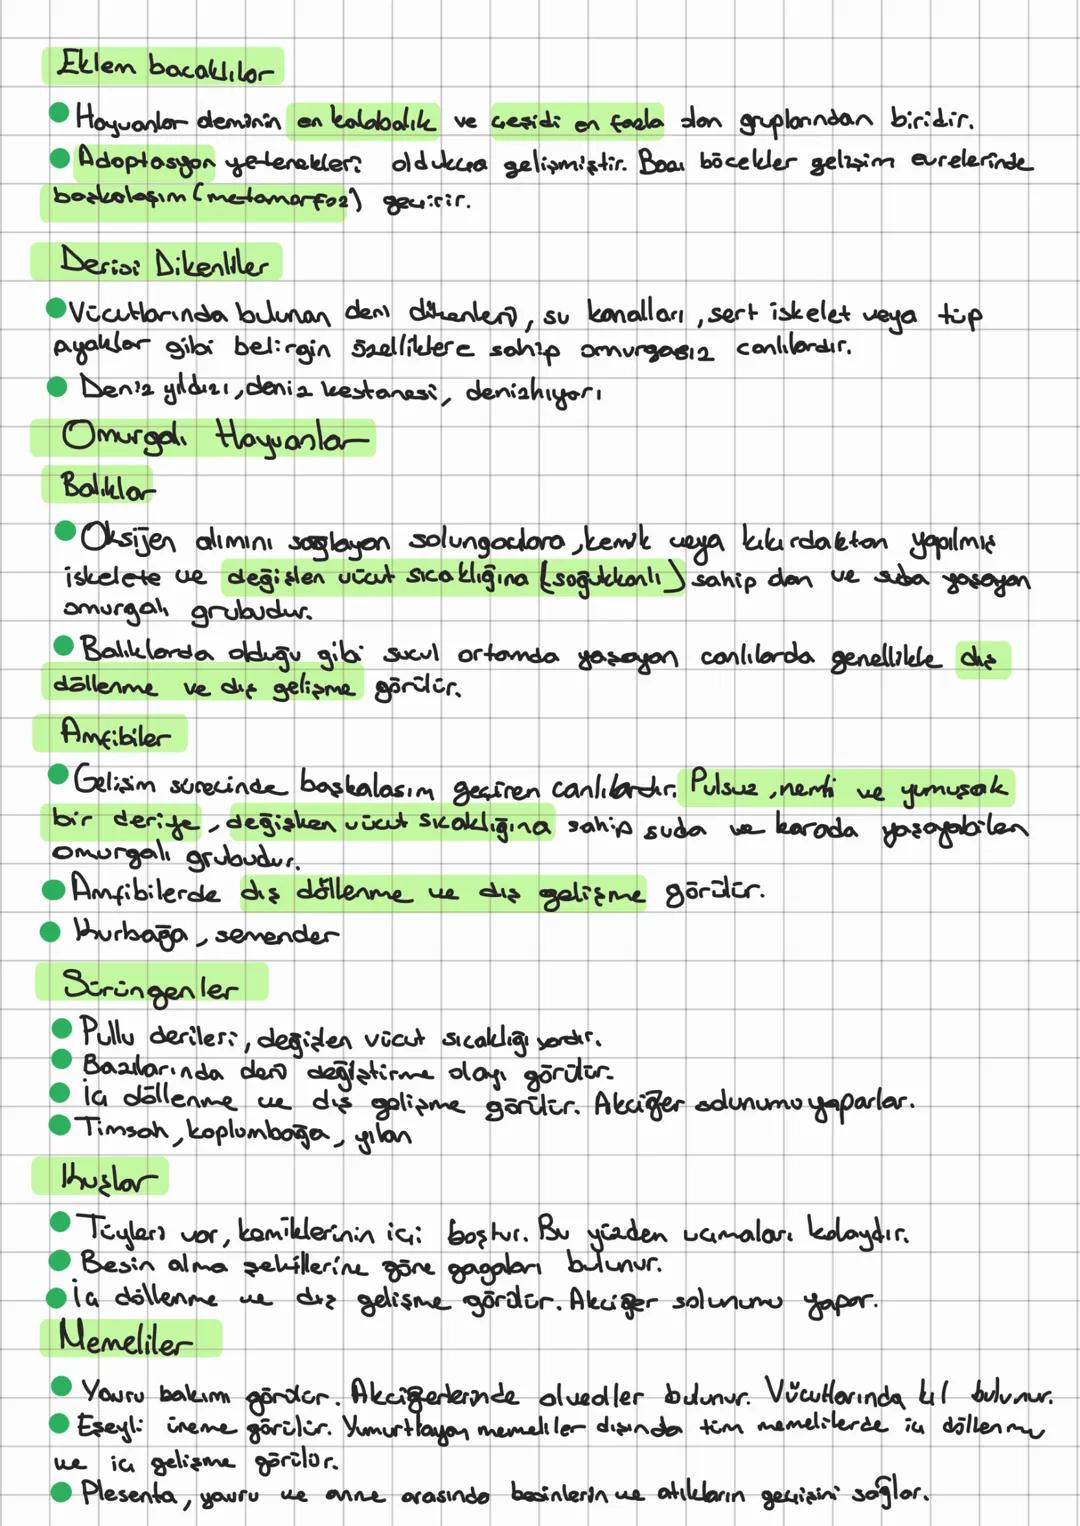 Eklem bacaklılar
Hayvanlar aleminin en kalabalık ve çeşidi en fazla olan gruplarından biridir.
Adaptasyon yetenekleri oldukça gelişmiştir. Bazı böcekler gelişim evrelerinde
başkalaşım (metamorfoz) geçirir.
Derisi Dikenliler
Vücutlarında bulunan deri dikenleri, su kanalları, sert iskelet veya tüp
ayaklar gibi belirgin özelliklere sahip omurgasız canlılardır.
Deniz yıldızı, deniz kestanesi, denizhıyarı
Omurgalı Hayvanlar
Balıklar
Oksijen alımını sağlayan solungaçlara, kemik veya kıkırdaktan yapılmış
iskelete ve değişken vücut sıcaklığına (soğukkanlı) sahip olan ve suda yaşayan
omurgalı grubudur.
Balıklarda olduğu gibi sucul ortamda yaşayan canlılarda genellikle dış
döllenme ve dış gelişme görülür.
Amfibiler
Gelişim sürecinde başkalaşım geçiren canlılardır. Pulsuz, nemli ve yumuşak
bir deriye, değişken vücut sıcaklığına sahip suda ve karada yaşayabilen
omurgalı grubudur.
Amfibilerde dış döllenme ve dış gelişme görülür.
Kurbağa, semender
Sürüngenler
Pullu derileri, değişken vücut sıcaklığı vardır.
Bazılarında deri değiştirme olayı görülür.
İç döllenme ve dış gelişme görülür. Akciğer solunumu yaparlar.
Timsah, kaplumbağa, yılan
Kuşlar
Tüyleri var, kemiklerinin içi boştur. Bu yüzden uçmaları kolaydır.
Besin alma şekillerine göre gagaları bulunur.
İç döllenme ve dış gelişme görülür. Akciğer solunumu yapar.
Memeliler
Yavru bakımı görülür. Akciğerlerinde alveoller bulunur. Vücutlarında kıl bulunur.
Eşeyli üreme görülür. Yumurtlayan memeliler dışında tüm memelilerde iç döllenme
ve iç gelişme görülür.
Plesenta, yavru ve anne arasında besinlerin ve atıkların geçişini sağlar.